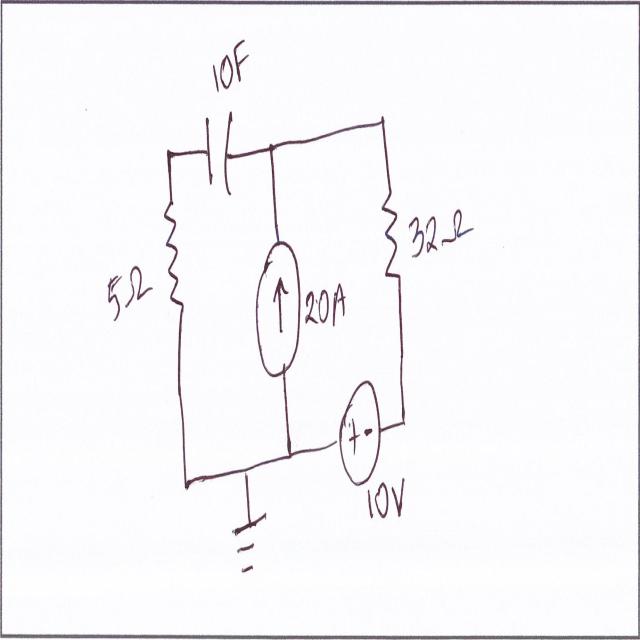 10F
5Ω
20A
32Ω
+ -
10V